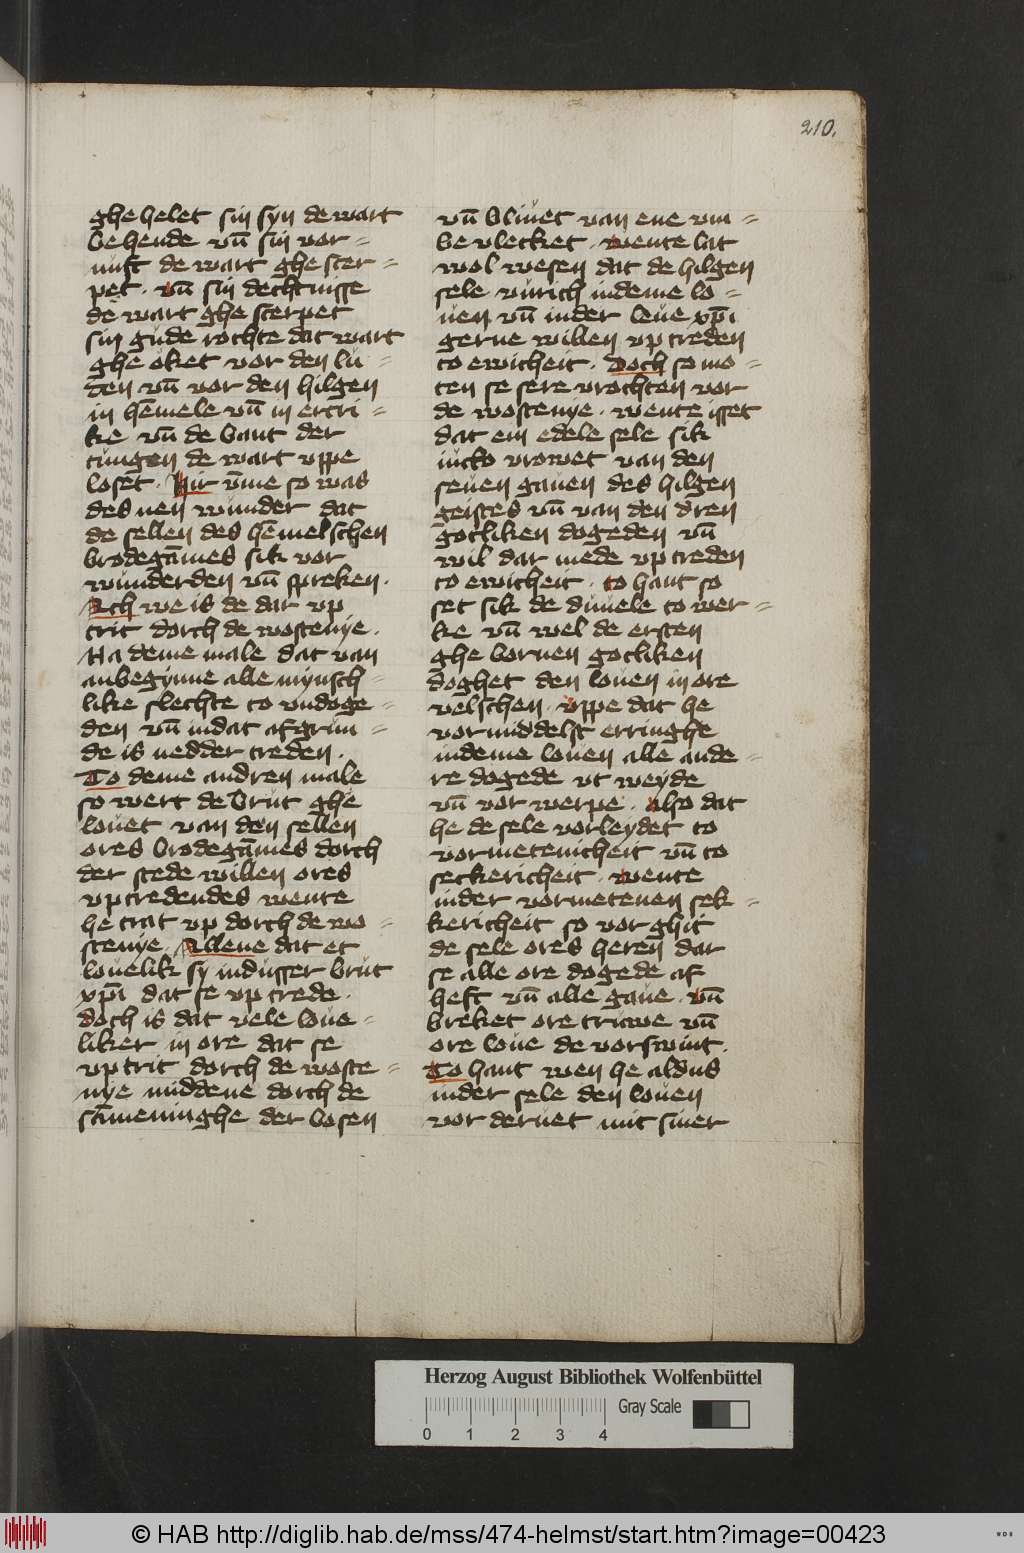 210.
ghe helet sin syn de wart
behende vn̄ sin vor =
nuft de wart ghe scer =
pet . vn̄ sin dechtnisse
de wart ghe scerpet
sin gude rochte dat wart
ghe oket vor den lu =
den vn̄ vor den hilgen
in hēmele vn̄ in ertri =
ke vn̄ de bant der
tungen de wart vppe
loset . Hir v̄me so was
des nen wunder dat
de sellen des hēmelschen
brodegāmes sik vor
wunderden vn̄ spreken .
Ach we is de dar vp
trit dorch de wostenye .
Na deme male dat van
anbegynne alle mynsch =
like slechte to vndoge =
den vn̄ in dat afgrun =
de is nedder treden .
To deme andren male
so wert de brut ghe
louet van den sellen
ores brodegāmes dorch
der stede willen ores
vptredendes wente
he trat vp dorch de wo =
stenye . Allene dat et
louelik sy in dusser brut
xp̄i dat se vp trede .
doch is dat vele loue =
liker in ore dat se
vp trit dorch de woste =
nye middene dorch de
sāmeninghe der bosen
vn̄ bliuet van ene vm =
be vlecket . wente lat
wol wesen dat de hilgen
sele vurich in deme lo =
uen vn̄ in der leue xp̄i
gerne willen vp treden
to ewicheit . Doch so mo =
ten se sere vrochten vor
de wostenye . wente isset
dat ein edele sele sik
iucto vrowet van den
seuen gauen des hilgen
geistes vn̄ van den dren
gotliken dogeden vn̄
wil dar mede vp treden
to ewicheit . to hant so
set sik de duuele to wer =
ke vn̄ wel de ersten
ghe bornen gotliken
doghet den louen in ore
velschen . vppe dat he
vormiddelst erringhe
in deme louen alle ande =
re dogede vt weyde
vn̄ vor werpe . also dat
he de sele vorleydet to
vormetenicheit vn̄ to
seckericheit . wente
in der vormetenen sek =
kericheit so vor ghit
de sele ores heren dar
se alle ore dogede af
heft vn̄ alle gaue . vn̄
breket ore truwe vn̄
ore loue de vorswint .
To hant wen he aldus
in der sele den louen
vor deruet mit siner
Herzog August Bibliothek Wolfenbüttel
Gray Scale
0 1 2 3 4
© HAB http://diglib.hab.de/mss/474-helmst/start.htm?image=00423